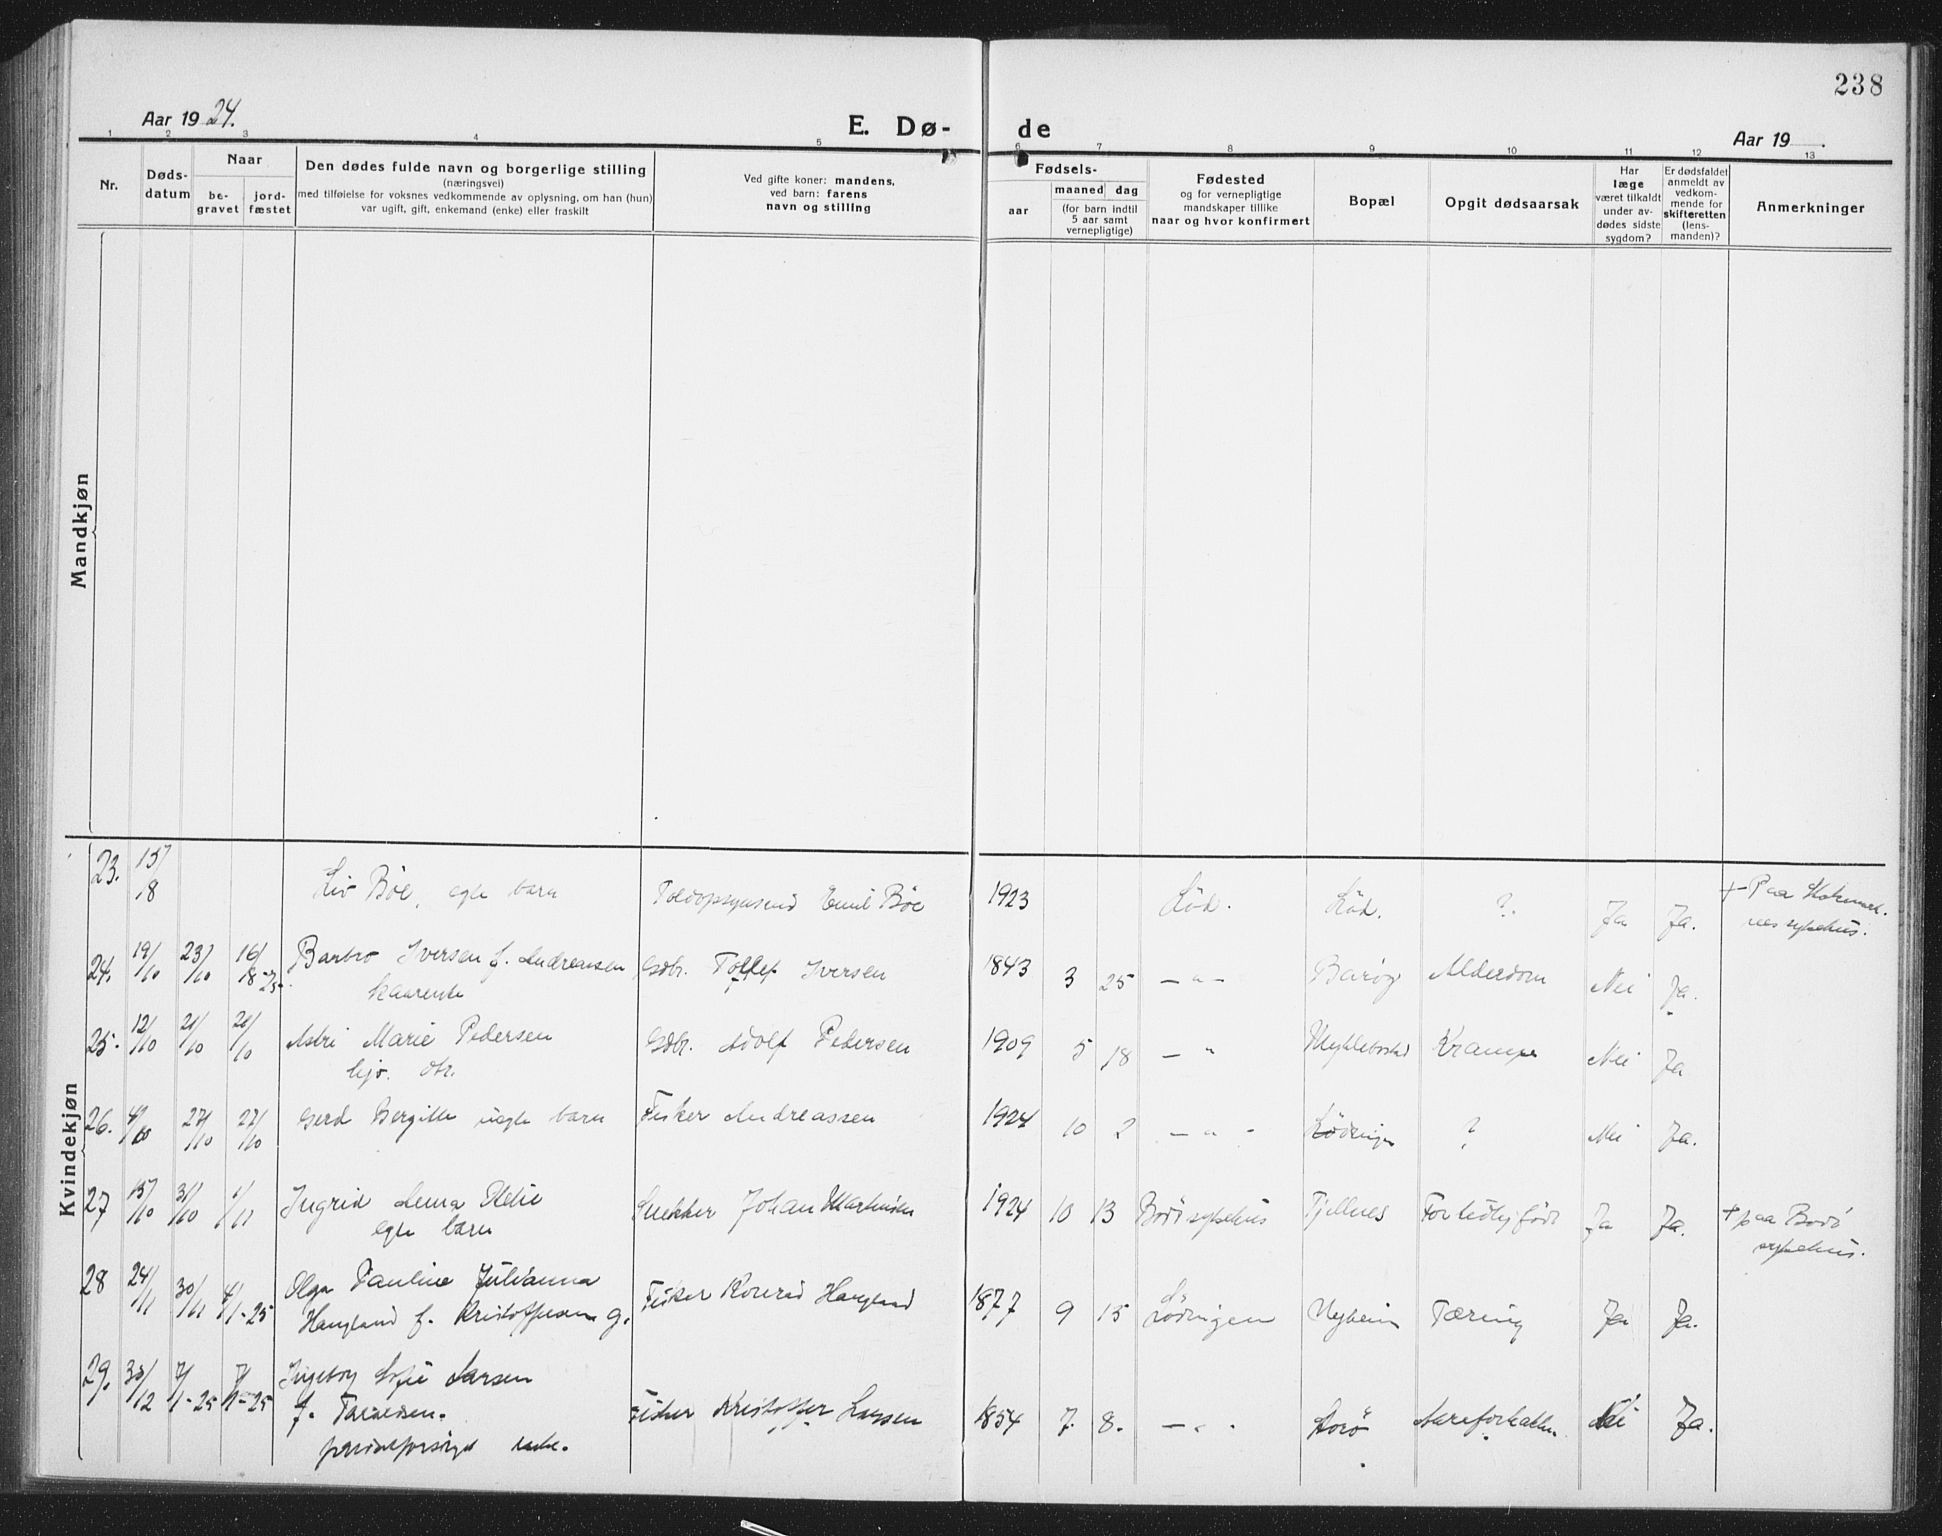 238
Aar 1924.
E. Dø-
de
Aar 19 .
1 2 3 4 5 6 7 8 9 10 11 12 13
Nr.
Døds-
datum
Naar
be-
gravet
jord-
fæstet
Den dødes fulde navn og borgerlige stilling
(næringsvei)
med tilføielse for voksnes vedkommende av oplysning, om han (hun)
var ugift, gift, enkemand (enke) eller fraskilt
Ved gifte koner: mandens,
ved barn: farens
navn og stilling
Fødsels-
aar
maaned dag
(for barn indtil
5 aar samt
vernepligtige)
Fødested
og for vernepligtige
mandskaper tillike
naar og hvor konfirmert
Bopæl
Opgit dødsaarsak
Har
læge
været tilkaldt
under av-
dødes sidste
sygdom?
Er dødsfaldet
anmeldt av
vedkom-
mende for
skifteretten
(lens-
manden)?
Anmerkninger
Mandkjøn
Kvindekjøn
23. 15/18 Liv Böe, egte barn Toldopsynsmd Emil Böe 1923 Löd. Löd. ? Ja Ja. + Paa
sykehus.
24. 19/10 23/10 16/18-25 Barbro Iversen f. Andreassen Gdbr. Tollef Iversen 1843 3 25 — " — Barøy Alderdom Nei Ja.
kaarenke
25. 12/10 21/10 21/10 Astri Marie Pedersen Gdbr. Adolf Pedersen 1909 5 18 — " Myklebostad Krampe Nei Ja
hjv. dtr.
26. 4/10 27/10 27/10 Gerd Bergitte uegte barn Fisker Andreassen 1924 10 2 — " - Lødingen ? Nei Ja.
27 15/10 31/10 1/11 Ingrid Lena Otelie Snekker Johan Martinsen 1924 10 13 Bodö sykehus Fjellnes For tidlig född Ja Ja. + paa Bodö
egte barn sykehus.
28 24/11 30/11 4/1-25 Olga Pauline Julianna Fisker Konrad Haugland 1877 9 15 Lödingen Nyheim Tæring Ja Ja.
Haugland f. Kristoffersen g.
29. 30/12 7/1-25 7/1-25 Ingeborg Sofie Larsen Fisker Kristoffer Larsen 1854 7. 8. — " - Aareforkalkn. Nei Ja.
f.
enke.